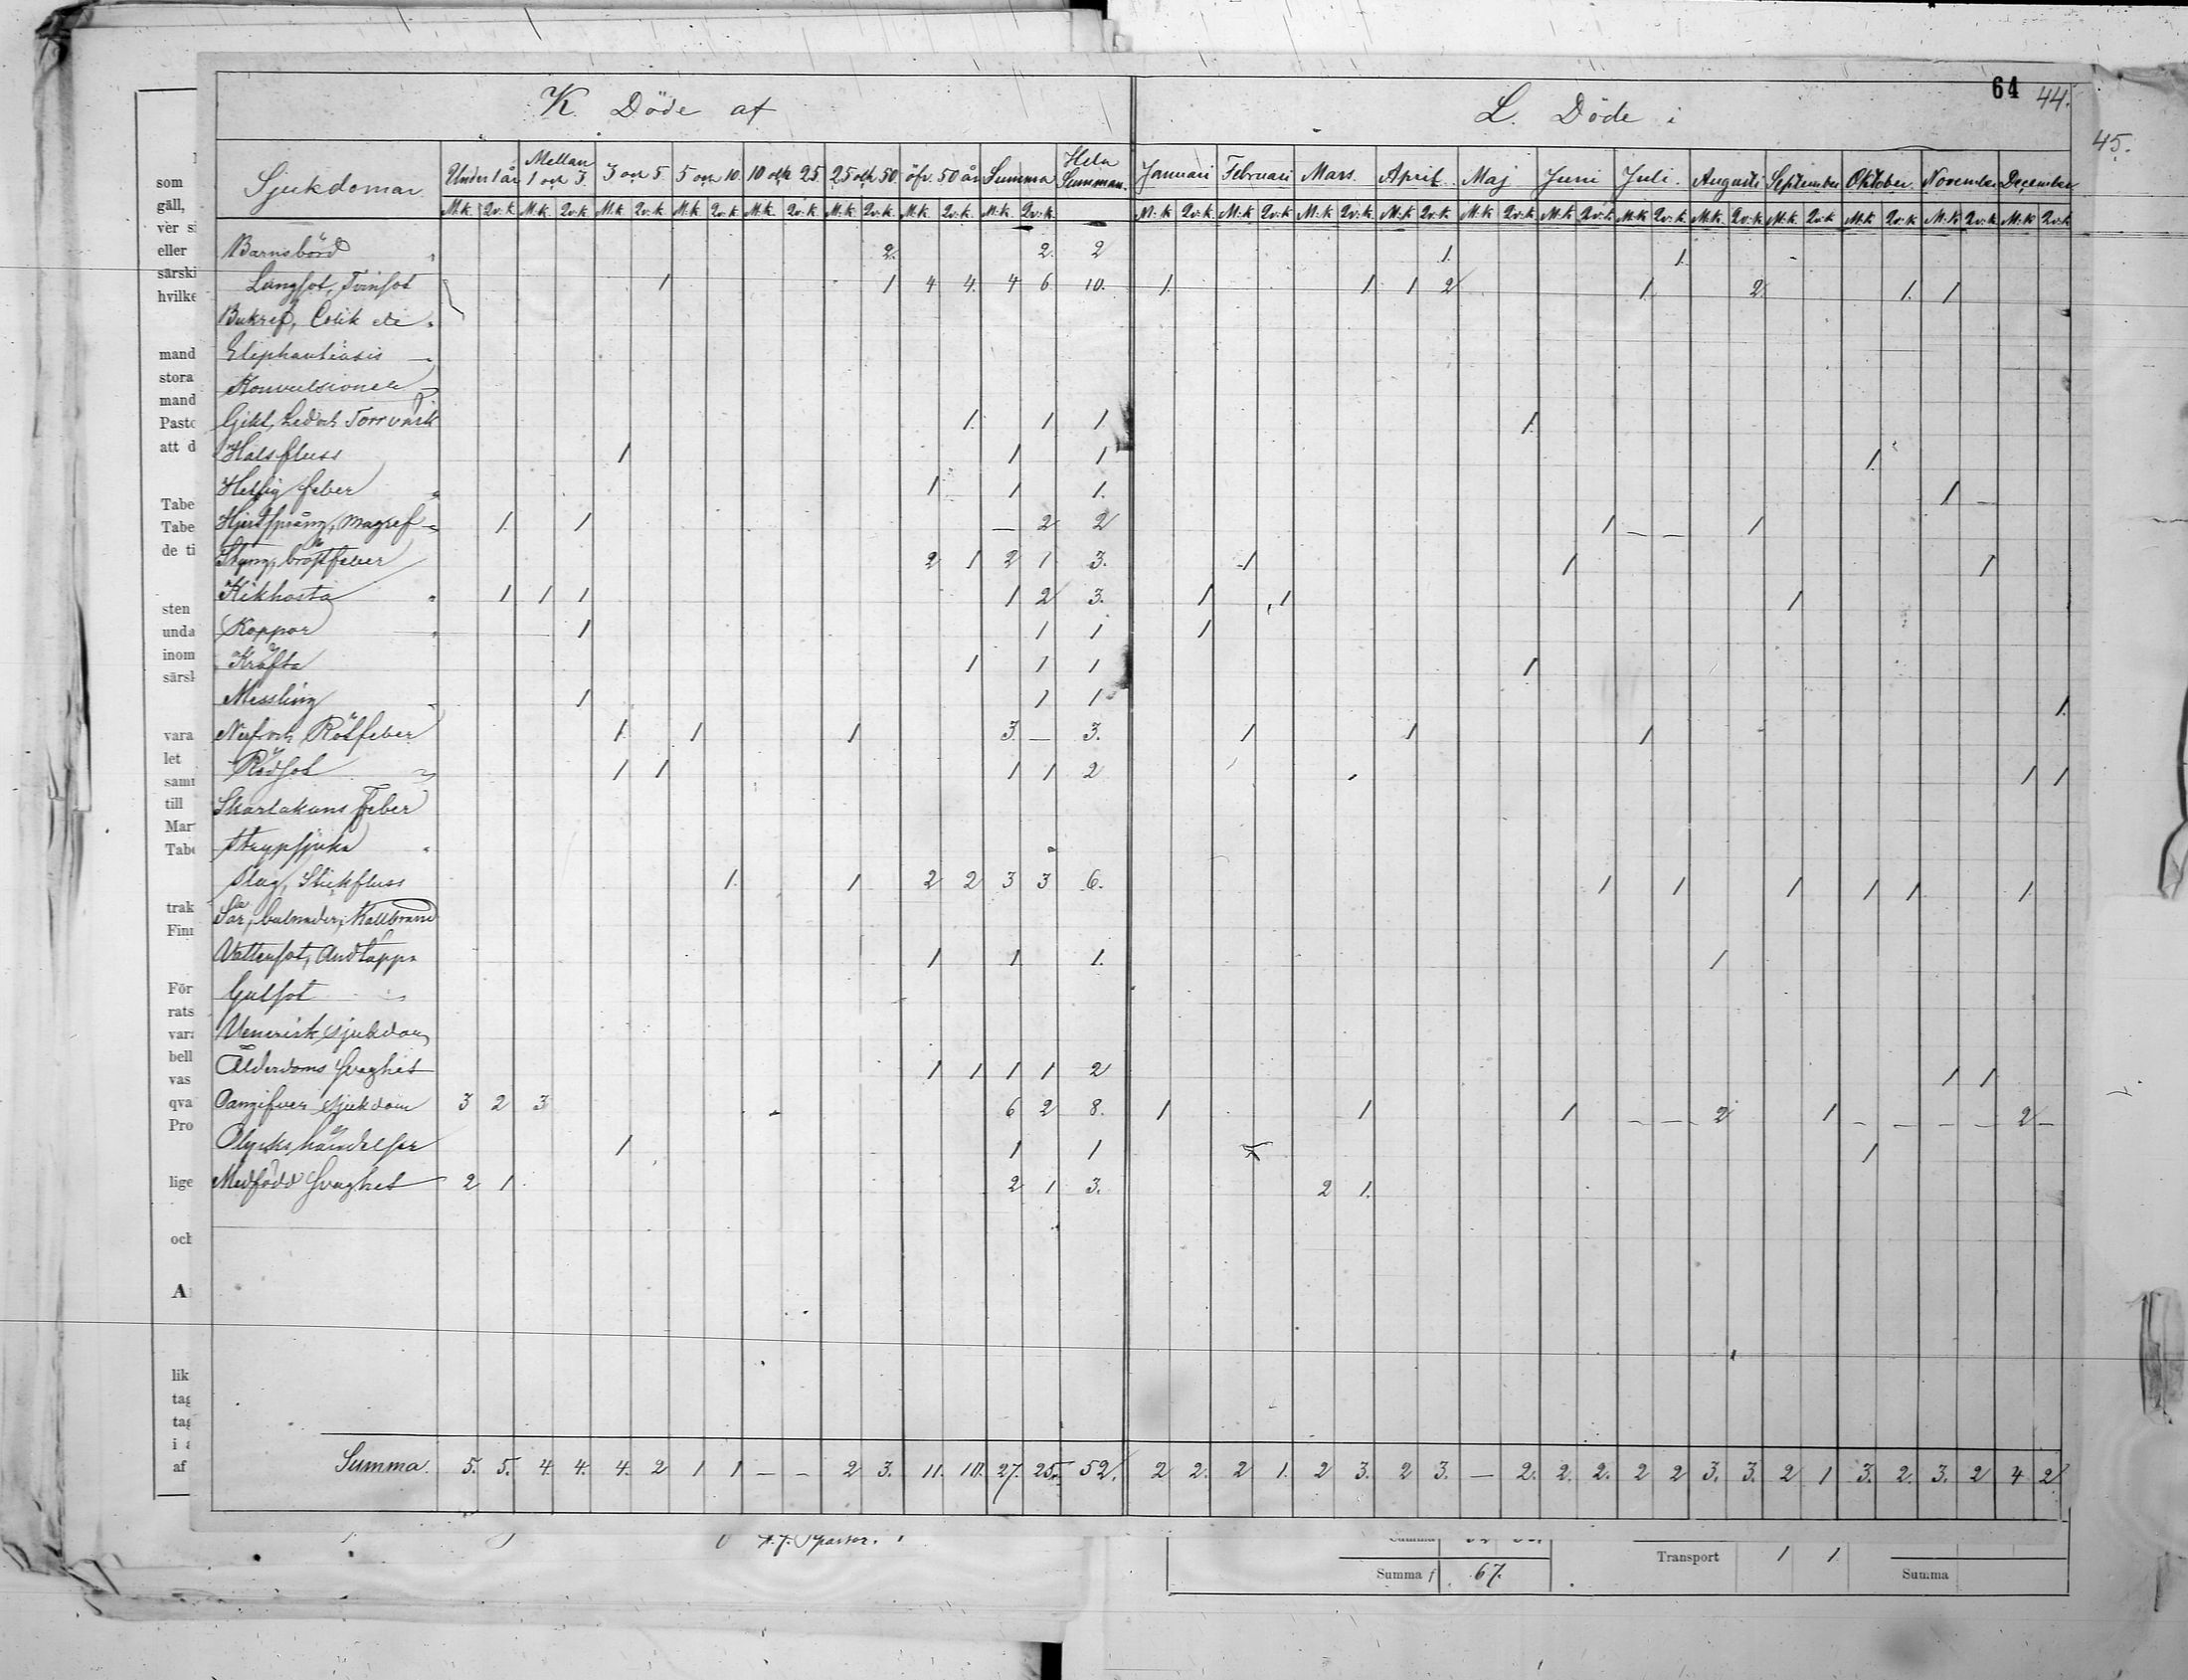 64 44.
45.
K. Döde af
L. Döde i
Sjukdomar Under 1 år Mellan 1 och 3. 3 och 5. 5 och 10. 10 och 25. 25 och 50. öfv. 50 år Summa Hela Summan. Januari Februari Mars. April. Maj Juni Juli. Augusti September Oktober. November December
M.k. Qv.k. M.k. Qv.k. M.k. Qv.k. M.k. Qv.k. M.k. Qv.k. M.k. Qv.k. M.k. Qv.k. M.k. Qv.k. M.k Qv.k. M.k Qv.k M.k Qv.k. M.k Qv.k. M.k Qv.k M.k Qv.k M.k Qv.k. M.k. Qv.k M.k. Qv.k M.k Qv.k M.k Qv.k M.k Qv.k
Barnsbörd 2. 2. 2 1. 1.
Lungsot, Tvinsot 1 1 4 4. 4 6 10. 1. 1. 1 2 1. 2 1. 1
Bukref, Colik etc.
Elephantiasis
Konvulsioner
Gikt, Led och Torrvärk 1. 1 1 1.
Halsfluss 1 1 1 1.
Hetsig feber 1 1 1. 1
Hjertsprång, Magref 1. 1 — 2 2 1 — — 1
Styng, bröstfeber 2 1 2 1. 3. 1 1 1
Kikhosta 1 1 1 1 2 3. 1 1 1
Koppor 1 1 1 1
Kräfta 1 1 1 1
Messling 1 1 1 1.
Nerf och Rötfeber 1. 1 1 3. — 3. 1 1 1
Rödsot 1 1 1 1 2 1 1
Skarlakans Feber
Strypsjuka
Slag, Stickfluss 1. 1 2 2 3 3 6. 1 1 1 1 1 1
Sår, bulnader, Kallbrand
Vattensot, Andtäppa 1 1 1. 1
Gulsot
Venerisk sjukdom
Ålderdoms svaghet 1 1 1 1 2 1 1
Oangifven sjukdom 3 2 3 6 2 8. 1 1 1 — — — 2 1 — — — — 2 —
Olyckshändelser 1 1 1 1
Medfödd svaghet 2 1. 2 1 3. 2 1.
Summa. 5. 5. 4. 4. 4. 2 1 1 — — 2 3. 11. 10. 27. 25. 52. 2 2. 2 1. 2 3. 2 3. — 2. 2. 2. 2 2 3. 3. 2 1 3. 2. 3. 2 4 2
som
gäll,
eller
särski
hvilke
mand
stora
mand
Pasto
att d
Tabe
Tabe
de ti
sten
unda
inom
särsl
vara
let
till
Mar
trak
Finn
För
rats
bell
vas
qva
Pro
lige
och
A
lik
tag
tag
i a
af
Transport 1 1
Summa 67. Summa